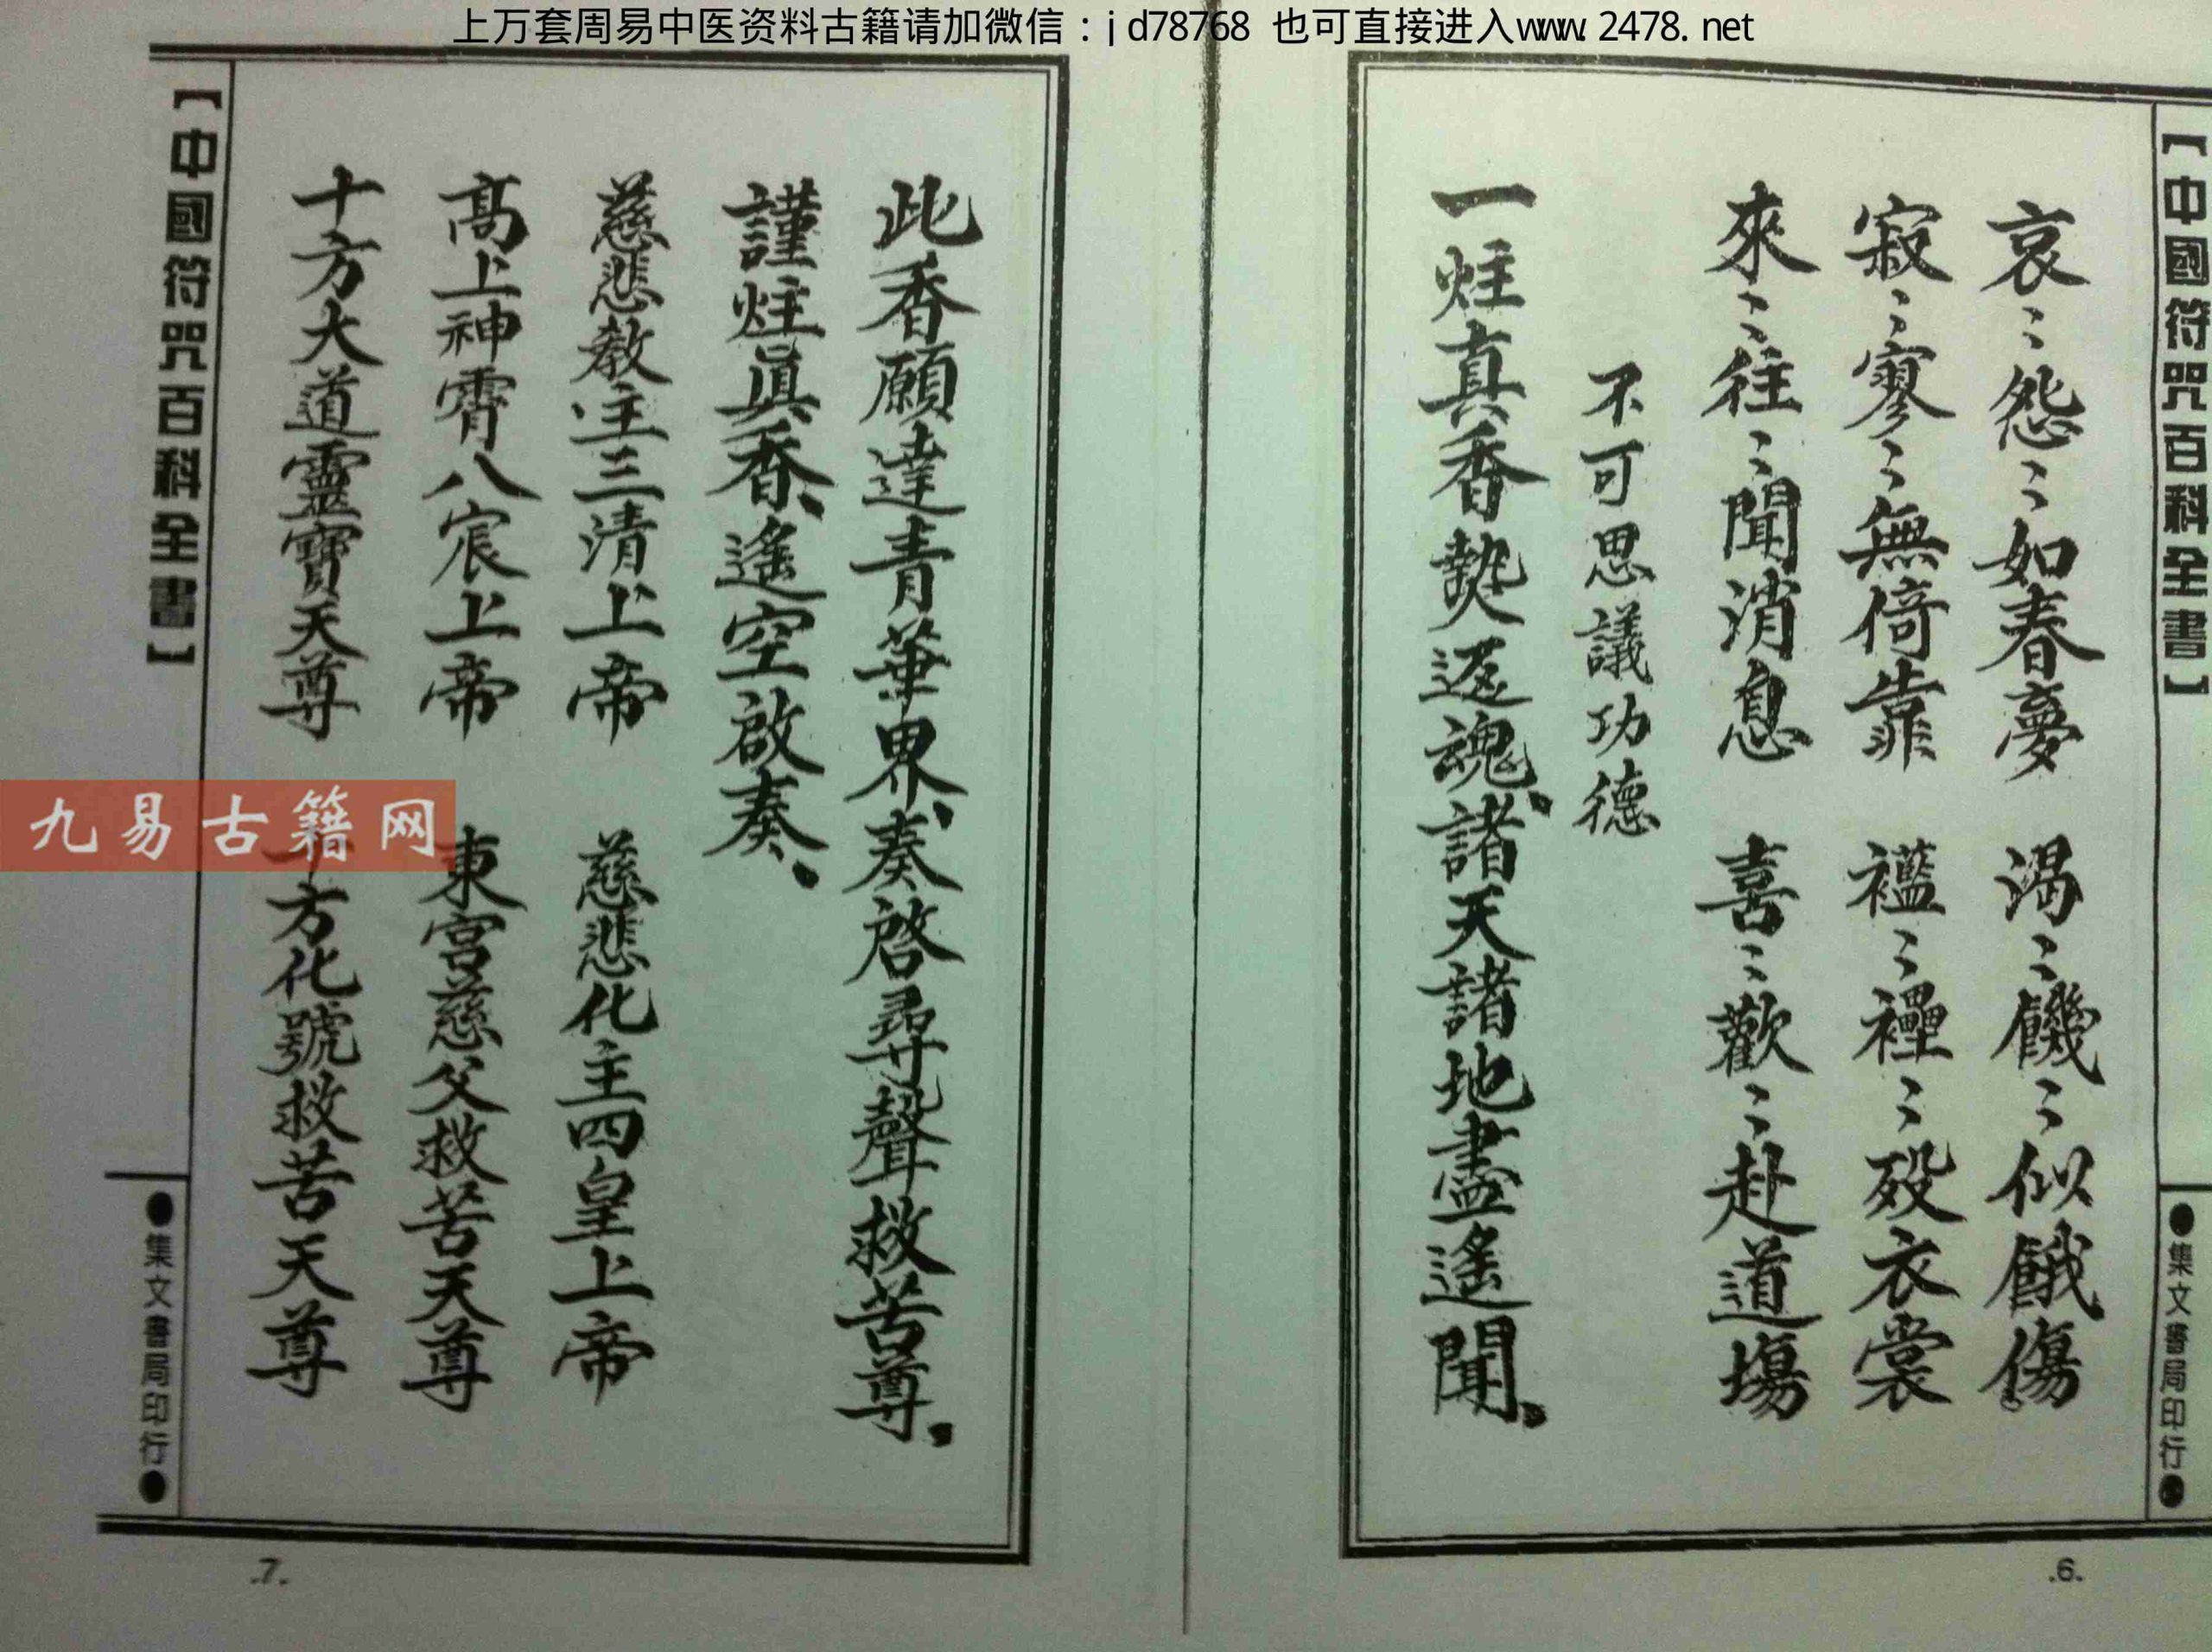 上万套周易中医资料古籍请加微信：jd78768 也可直接进入www.2478.net
【中國符咒百科全書】
●集文書局印行●
哀〻怨〻如春夢 渴〻饑〻似餓傷
寂〻寥〻無倚靠 襤〻褸〻殁衣裳
來〻往〻聞消息 喜〻歡〻赴道場
不可思議功德
一炷真香爇返魂、諸天諸地盡遙聞。
.6.
此香願達青華界、奏啓尋聲救苦尊。
謹炷眞香、遙空啟奏、
慈悲教主三清上帝 慈悲化主四皇上帝
高上神霄八宸上帝 東宮慈父救苦天尊
十方大道靈寶天尊 十方化號救苦天尊
【中國符咒百科全書】
●集文書局印行●
.7.
九易古籍网